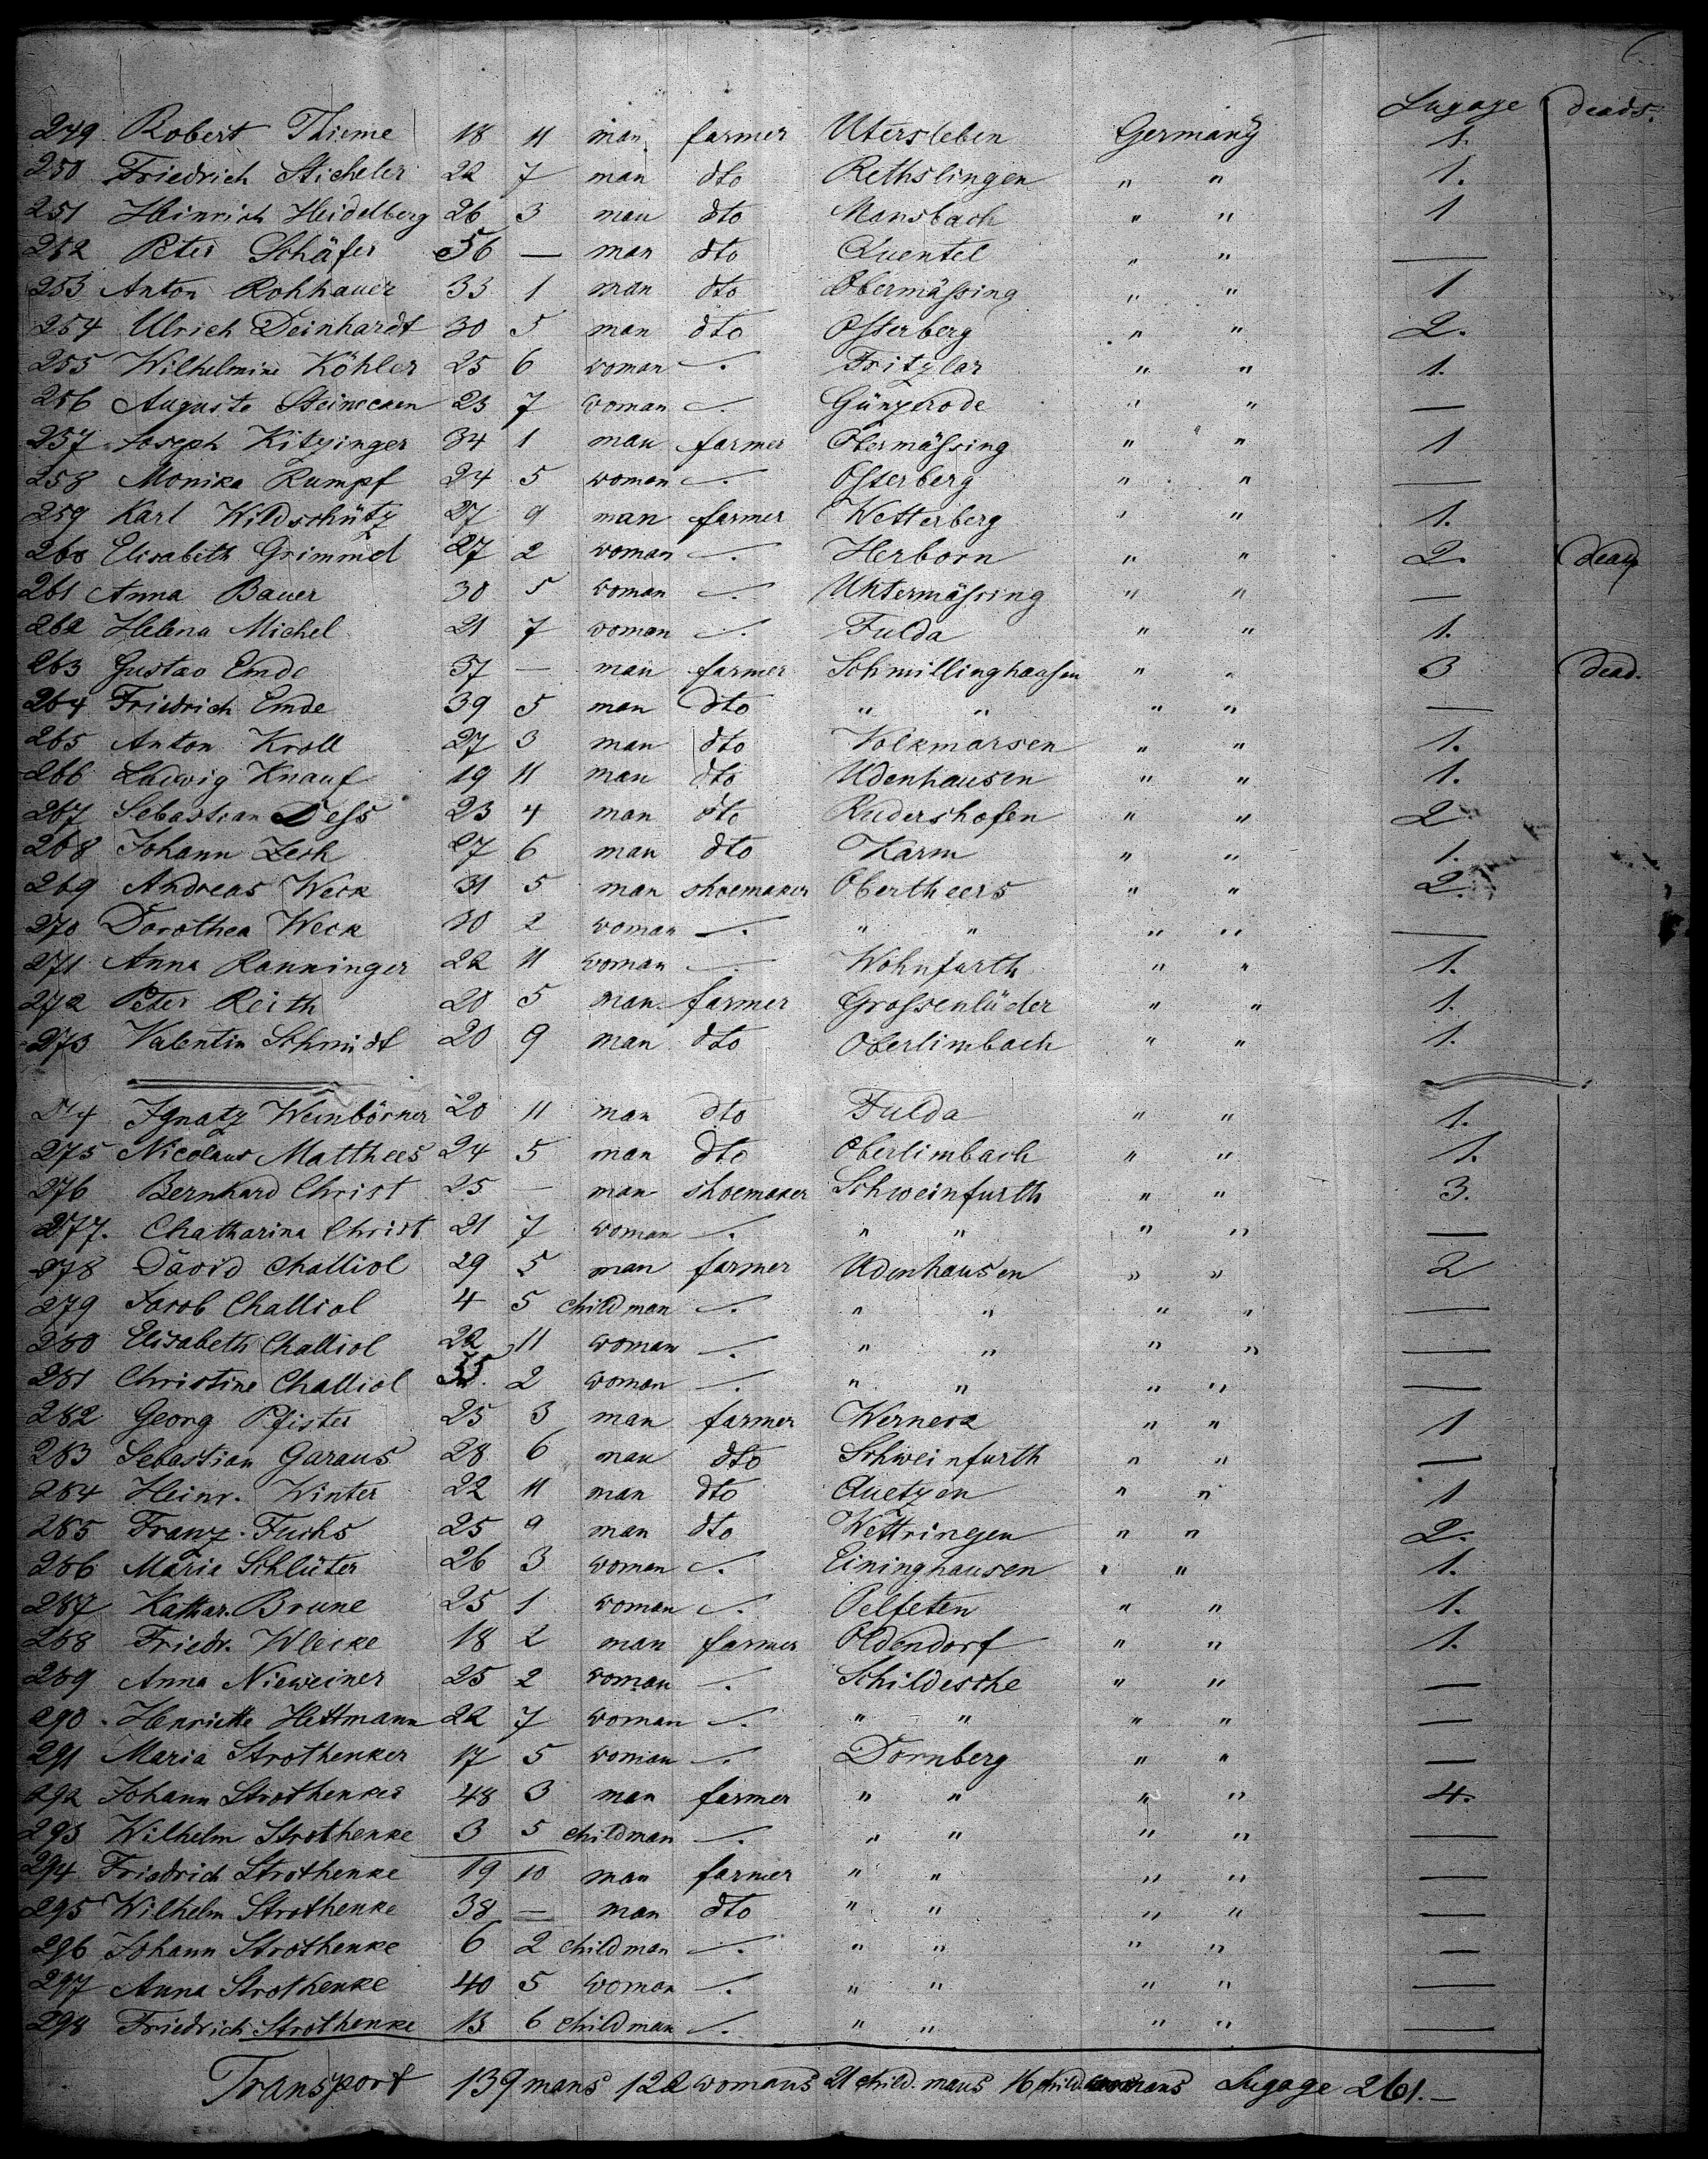 Lugage deads.
249 Robert Thieme 18 11 man farmer Utersleben Germany 1.
250 Friedrich Sticheler 22 7 man dto Rethslingen " " 1.
251 Heinrich Heidelberg 26 3 man dto Mansbach " " 1
252 Peter Schäfer 56 — man dto Quentel " " —
253 Anton Rohhauer 33 1 man dto Obermässing " " 1
254 Ulrich Deinhardt 30 5 man dto Osterberg " " 2.
255 Wilhelmine Köhler 25 6 woman —. Fritzlar " " 1.
256 Auguste Steinecken 23 7 woman —. Günzerode " " —
257 Joseph Kitzinger 34 1 man farmer Obermässing " " 1
258 Monika Rumpf 24 5 woman —. Osterberg " " —
259 Karl Wildschütz 27 9 man farmer Wetterberg " " 1.
260 Elisabeth Grimmel 27 2 woman —. Herborn " " 2. dead
261 Anna Bauer 30 5 woman —. Untermässing " " —
262 Helena Michel 21 7 woman —. Fulda " " 1.
263 Gustav Emde 37 — man farmer Schmillinghausen " " 3 dead.
264 Friedrich Emde 39 5 man dto " " " " —
265 Anton Kroll 27 3 man dto Volkmarsen " " 1.
266 Ludwig Knauf 19 11 man dto Udenhausen " " 1.
267 Sebastian Dess 23 4 man dto Rudershofen " " 2
268 Johann Zech 27 6 man dto Karm " " 1.
269 Andreas Weck 31 5 man shoemaker Obertheers " " 2.
270 Dorothea Weck 30 2 woman —. " " " " —
271 Anna Ranninger 22 11 woman — Wohnfurth " " 1.
272 Peter Reith 20 5 man farmer Grossenlüder " " 1.
273 Valentin Schmidt 20 9 man dto Oberlimbach " " 1.
274 Ignatz Weinbörner 20 11 man dto Fulda " " 1.
275 Nicolaus Matthees 24 5 man dto Oberlimbach " " 1.
276 Bernhard Christ 25 — man shoemaker Schweinfurth " " 3.
277. Chatharina Christ 21 7 woman —. " " " " —
278 David Challiol 29 5 man farmer Udenhausen " " 2
279 Jacob Challiol 4 5 child man —. " " " " —
280 Elisabeth Challiol 22 11 woman —. " " " " —
281 Christine Challiol 35. 2 woman —. " " " " —
282 Georg Pfister 25 3 man farmer Werneck " " 1
283 Sebastian Garaus 28 6 man dto Schweinfurth " " —
284 Heinr. Winter 22 11 man dto Auetzen " " 1
285 Franz Fuchs 25 9 man dto Wettringen " " 2.
286 Marie Schlüter 26 3 woman —. Eininghausen " " 1.
287 Kathar. Brune 25 1 woman —. Pelfeten " " 1.
288 Friedr. Wlecke 18 2 man farmer Oldendorf " " 1.
289 Anna Nieweiner 25 2 woman —. Schildesche " " —
290 Henriette Hettmann 22 7 woman —. " " " " —
291 Maria Strothenker 17 5 woman —. Dornberg " " —
292 Johann Strothenker 48 3 man farmer " " " " 4.
293 Wilhelm Strothenke 3 5 child man —. " " " " —
294 Friedrich Strothenke 19 10 man farmer " " " " —
295 Wilhelm Strothenke 38 — man dto " " " " —
296 Johann Strothenke 6 2 child man —. " " " " —
297 Anna Strothenke 40 5 woman —. " " " " —
298 Friedrich Strothenke 13 6 child man —. " " " " —
Transport 139 mans 122 womans 21 child. mans 16 child. womans Lugage 261.—